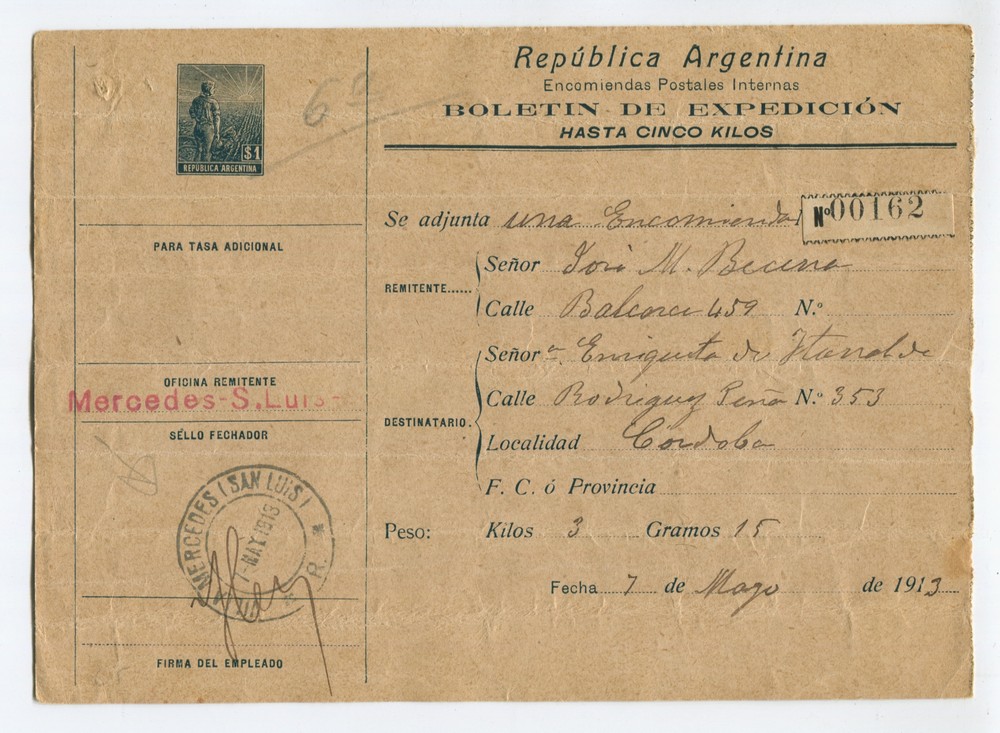 $1
REPÚBLICA ARGENTINA
60
PARA TASA ADICIONAL
OFICINA REMITENTE
Mercedes-S.Luis-
SÉLLO FECHADOR
MERCEDES (SAN LUIS)
7-MAY 1913
R.
FIRMA DEL EMPLEADO
República Argentina
Encomiendas Postales Internas
BOLETIN DE EXPEDICIÓN
HASTA CINCO KILOS
Se adjunta una Encomienda Nº 00162
REMITENTE......
Señor José M. Becerra
Calle Balcarce 459 N.º
DESTINATARIO.
Señorª Enriqueta de
Calle Rodriguez Peña N.º 353
Localidad Cordoba
F. C. ó Provincia
Peso: Kilos 3 Gramos 15
Fecha 7 de Mayo de 1913